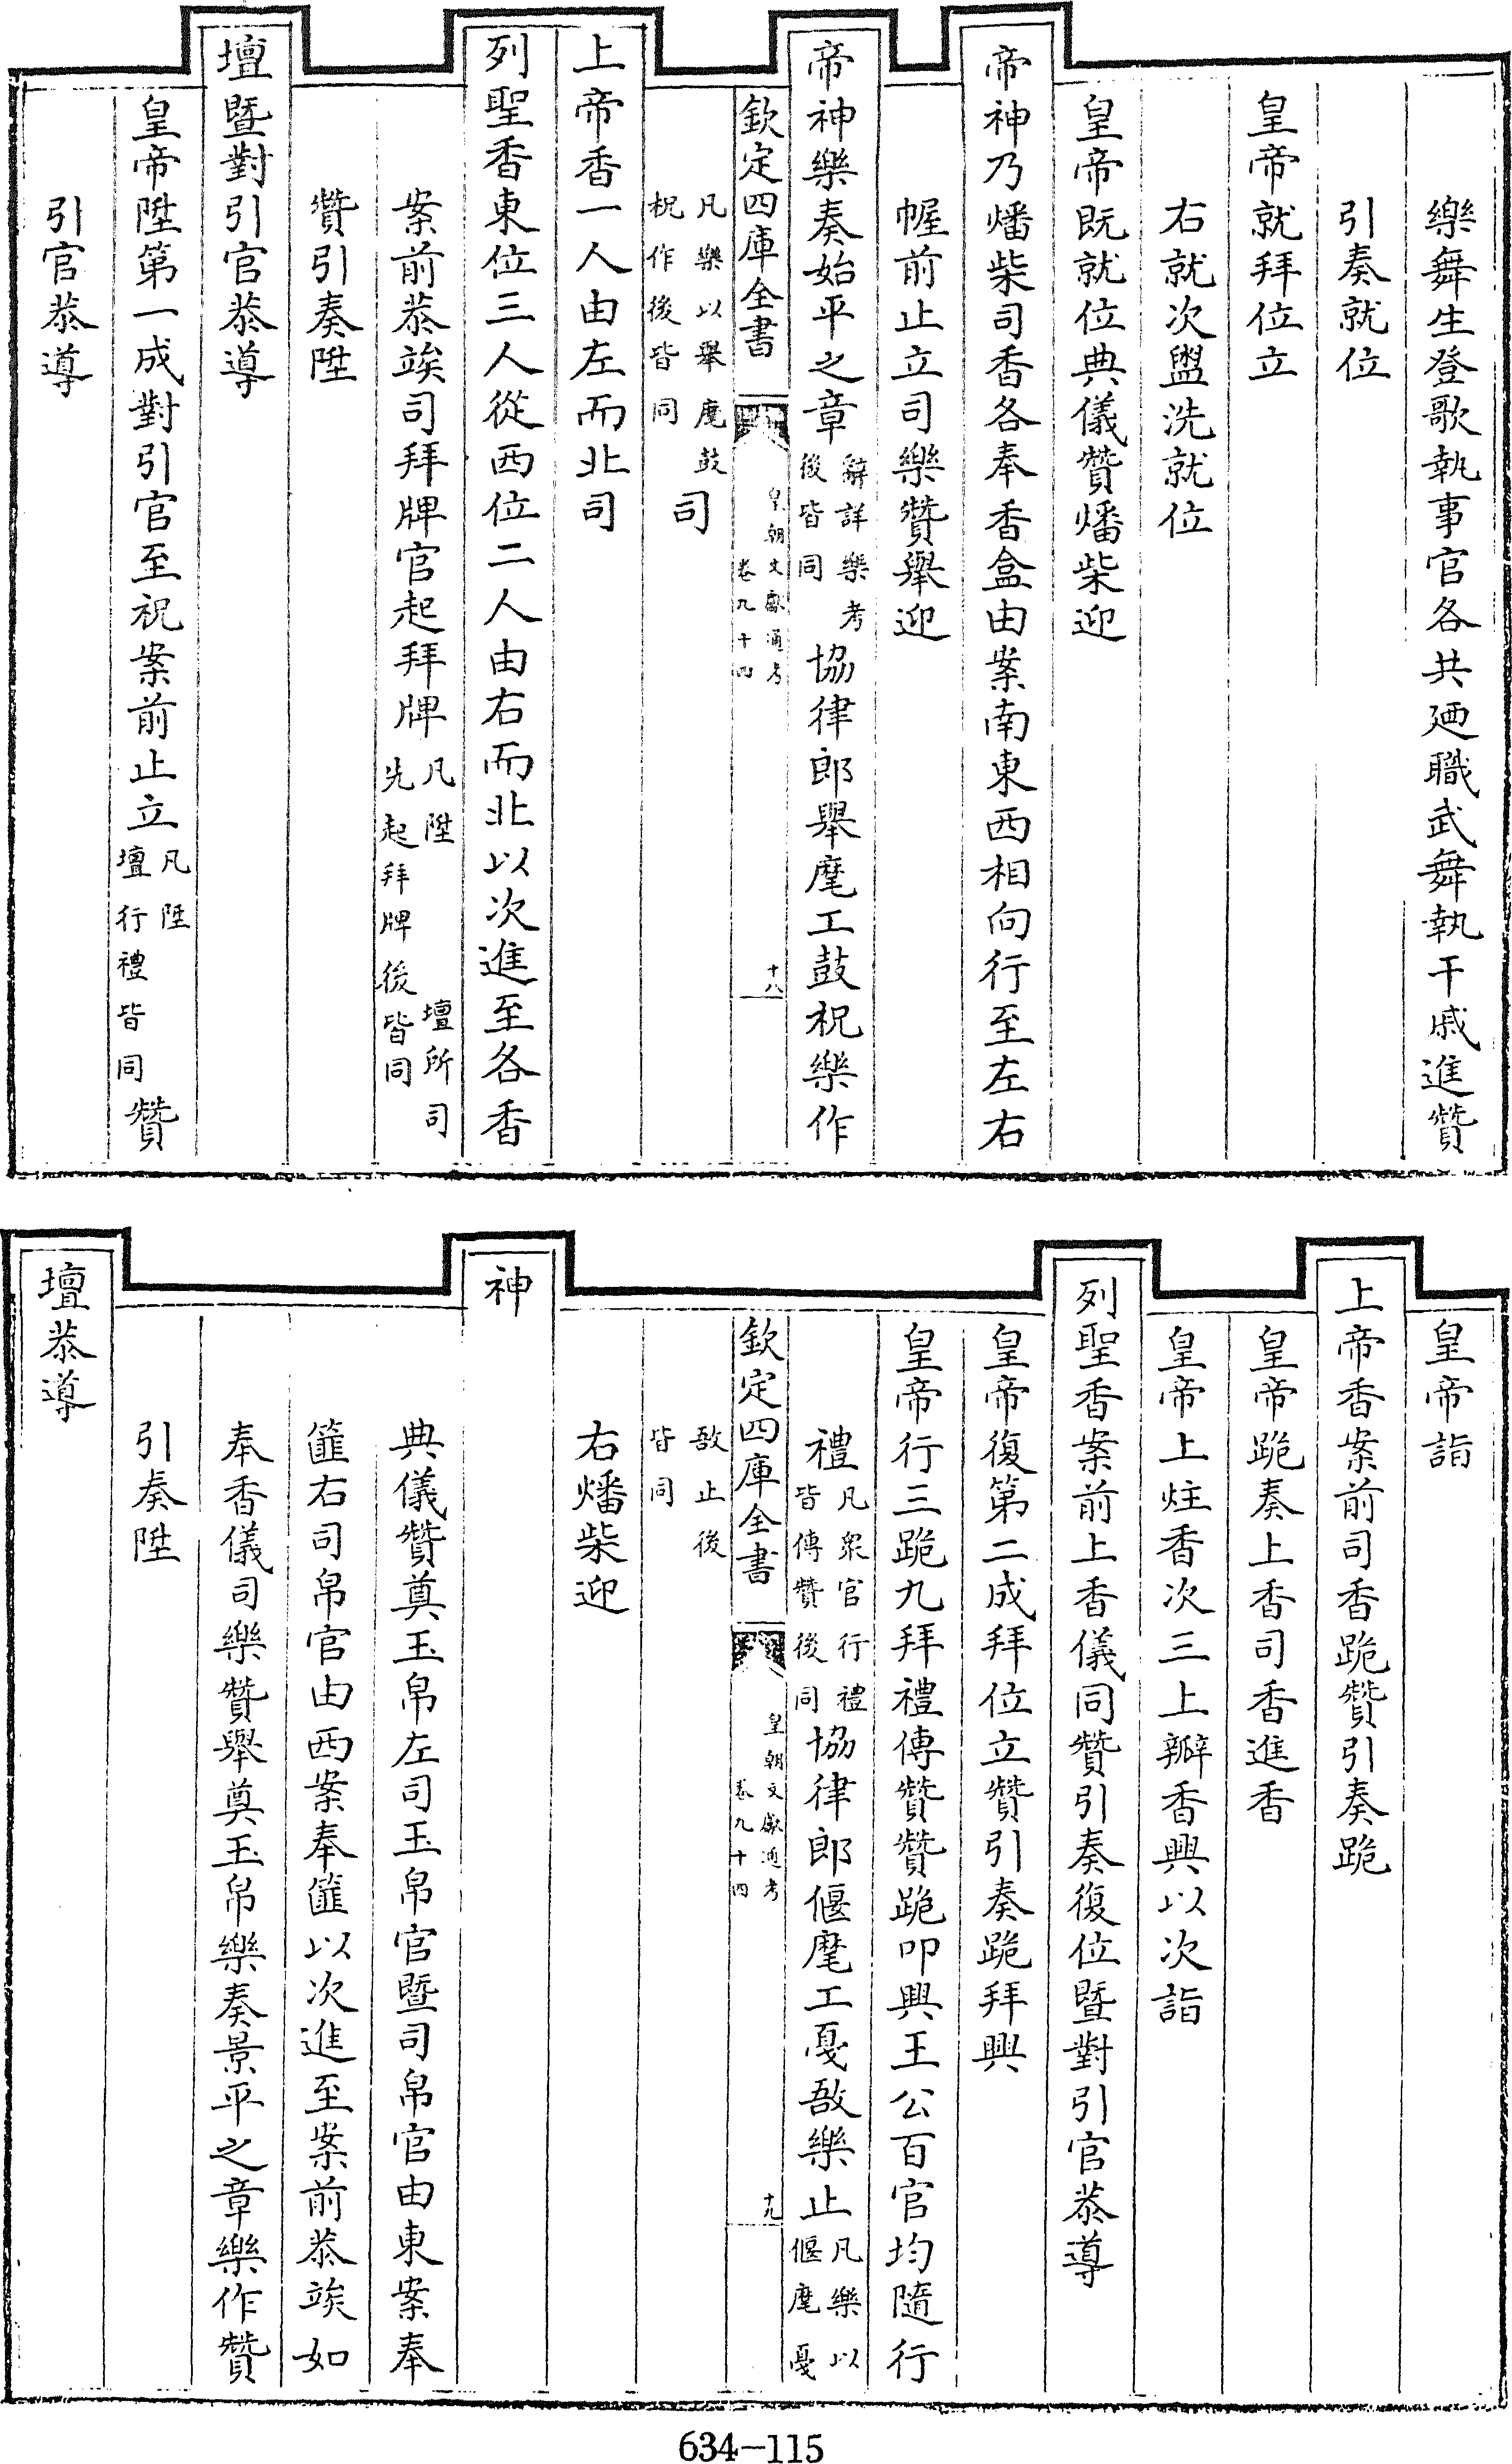 樂舞生登歌執事官各共迺職武舞執干戚進贊
引奏就位
皇帝就拜位立
右就次盥洗就位
皇帝既就位典儀贊燔柴迎
帝神乃燔柴司香各奉香盒由案南東西相向行至左右
幄前止立司樂贊舉迎
帝神樂奏始平之章辭詳樂考後皆同協律郎舉麾工鼓柷樂作
欽定四庫全書 皇朝文獻通考卷九十四 十八
凡樂以舉麾鼓柷作後皆同司
上帝香一人由左而北司
列聖香東位三人從西位二人由右而北以次進至各香
案前恭竢司拜牌官起拜牌凡陞壇所司先起拜牌後皆同
贊引奏陞
壇暨對引官恭導
皇帝陞第一成對引官至祝案前止立凡陞壇行禮皆同贊
引官恭導
皇帝詣
上帝香案前司香跪贊引奏跪
皇帝跪奏上香司香進香
皇帝上炷香次三上瓣香興以次詣
列聖香案前上香儀同贊引奏復位暨對引官恭導
皇帝復第二成拜位立贊引奏跪拜興
皇帝行三跪九拜禮傳贊贊跪叩興王公百官均隨行
禮凡衆官行禮皆傳贊後同協律郎偃麾工戛敔樂止凡樂以偃麾戛
欽定四庫全書 皇朝文獻通考卷九十四 十九
敔止後皆同
右燔柴迎
神
典儀贊奠玉帛左司玉帛官暨司帛官由東案奉
篚右司帛官由西案奉篚以次進至案前恭竢如
奉香儀司樂贊舉奠玉帛樂奏景平之章樂作贊
引奏陞
壇恭導
634-115